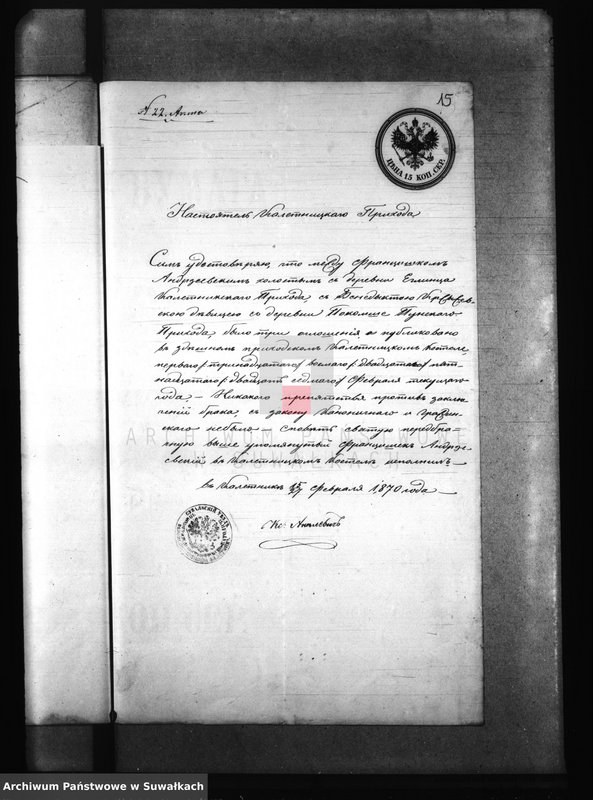 15
N 22. Анта
ЦѢНА 15 КОП. СЕР.
Настоятель Калетницкаго Прихода
Симъ удостовѣряю, что между Францишкомъ
Андрзеевскимъ холостымъ съ деревни Еглинца
Калетникскаго Прихода, съ Бенедыктою
скою дѣвицею съ деревни Покомше Пунскаго
Прихода, было три оглошенія а публиковано
въ здѣшномъ приходскомъ Калетницкомъ Костеле,
перваго/тринадцатаго восьмаго/двадцатаго пят-
надцатаго/двадцать седьмаго Февраля текущаго
года — Никакого препятствія противъ заклю-
ченій брака, съ закону Каноничнаго и граждан-
скаго небыло — сповѣдь святую передбра-
чную выше упомянутый Францишекъ Андрзе-
евскій въ Калетницкомъ Костеле исполнилъ —
въ Калетникъ 15/27 Февраля 1870 года —
Кс:
ARCHIWUM PAŃSTWOWE
Archiwum Państwowe w Suwałkach